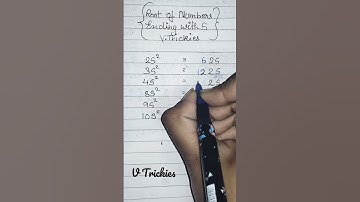 Root of Numbers
Ending with 5
V.Trickies
25² = 625
35² = 1225
45² = 25
85² =
95²
105²
V Trickies